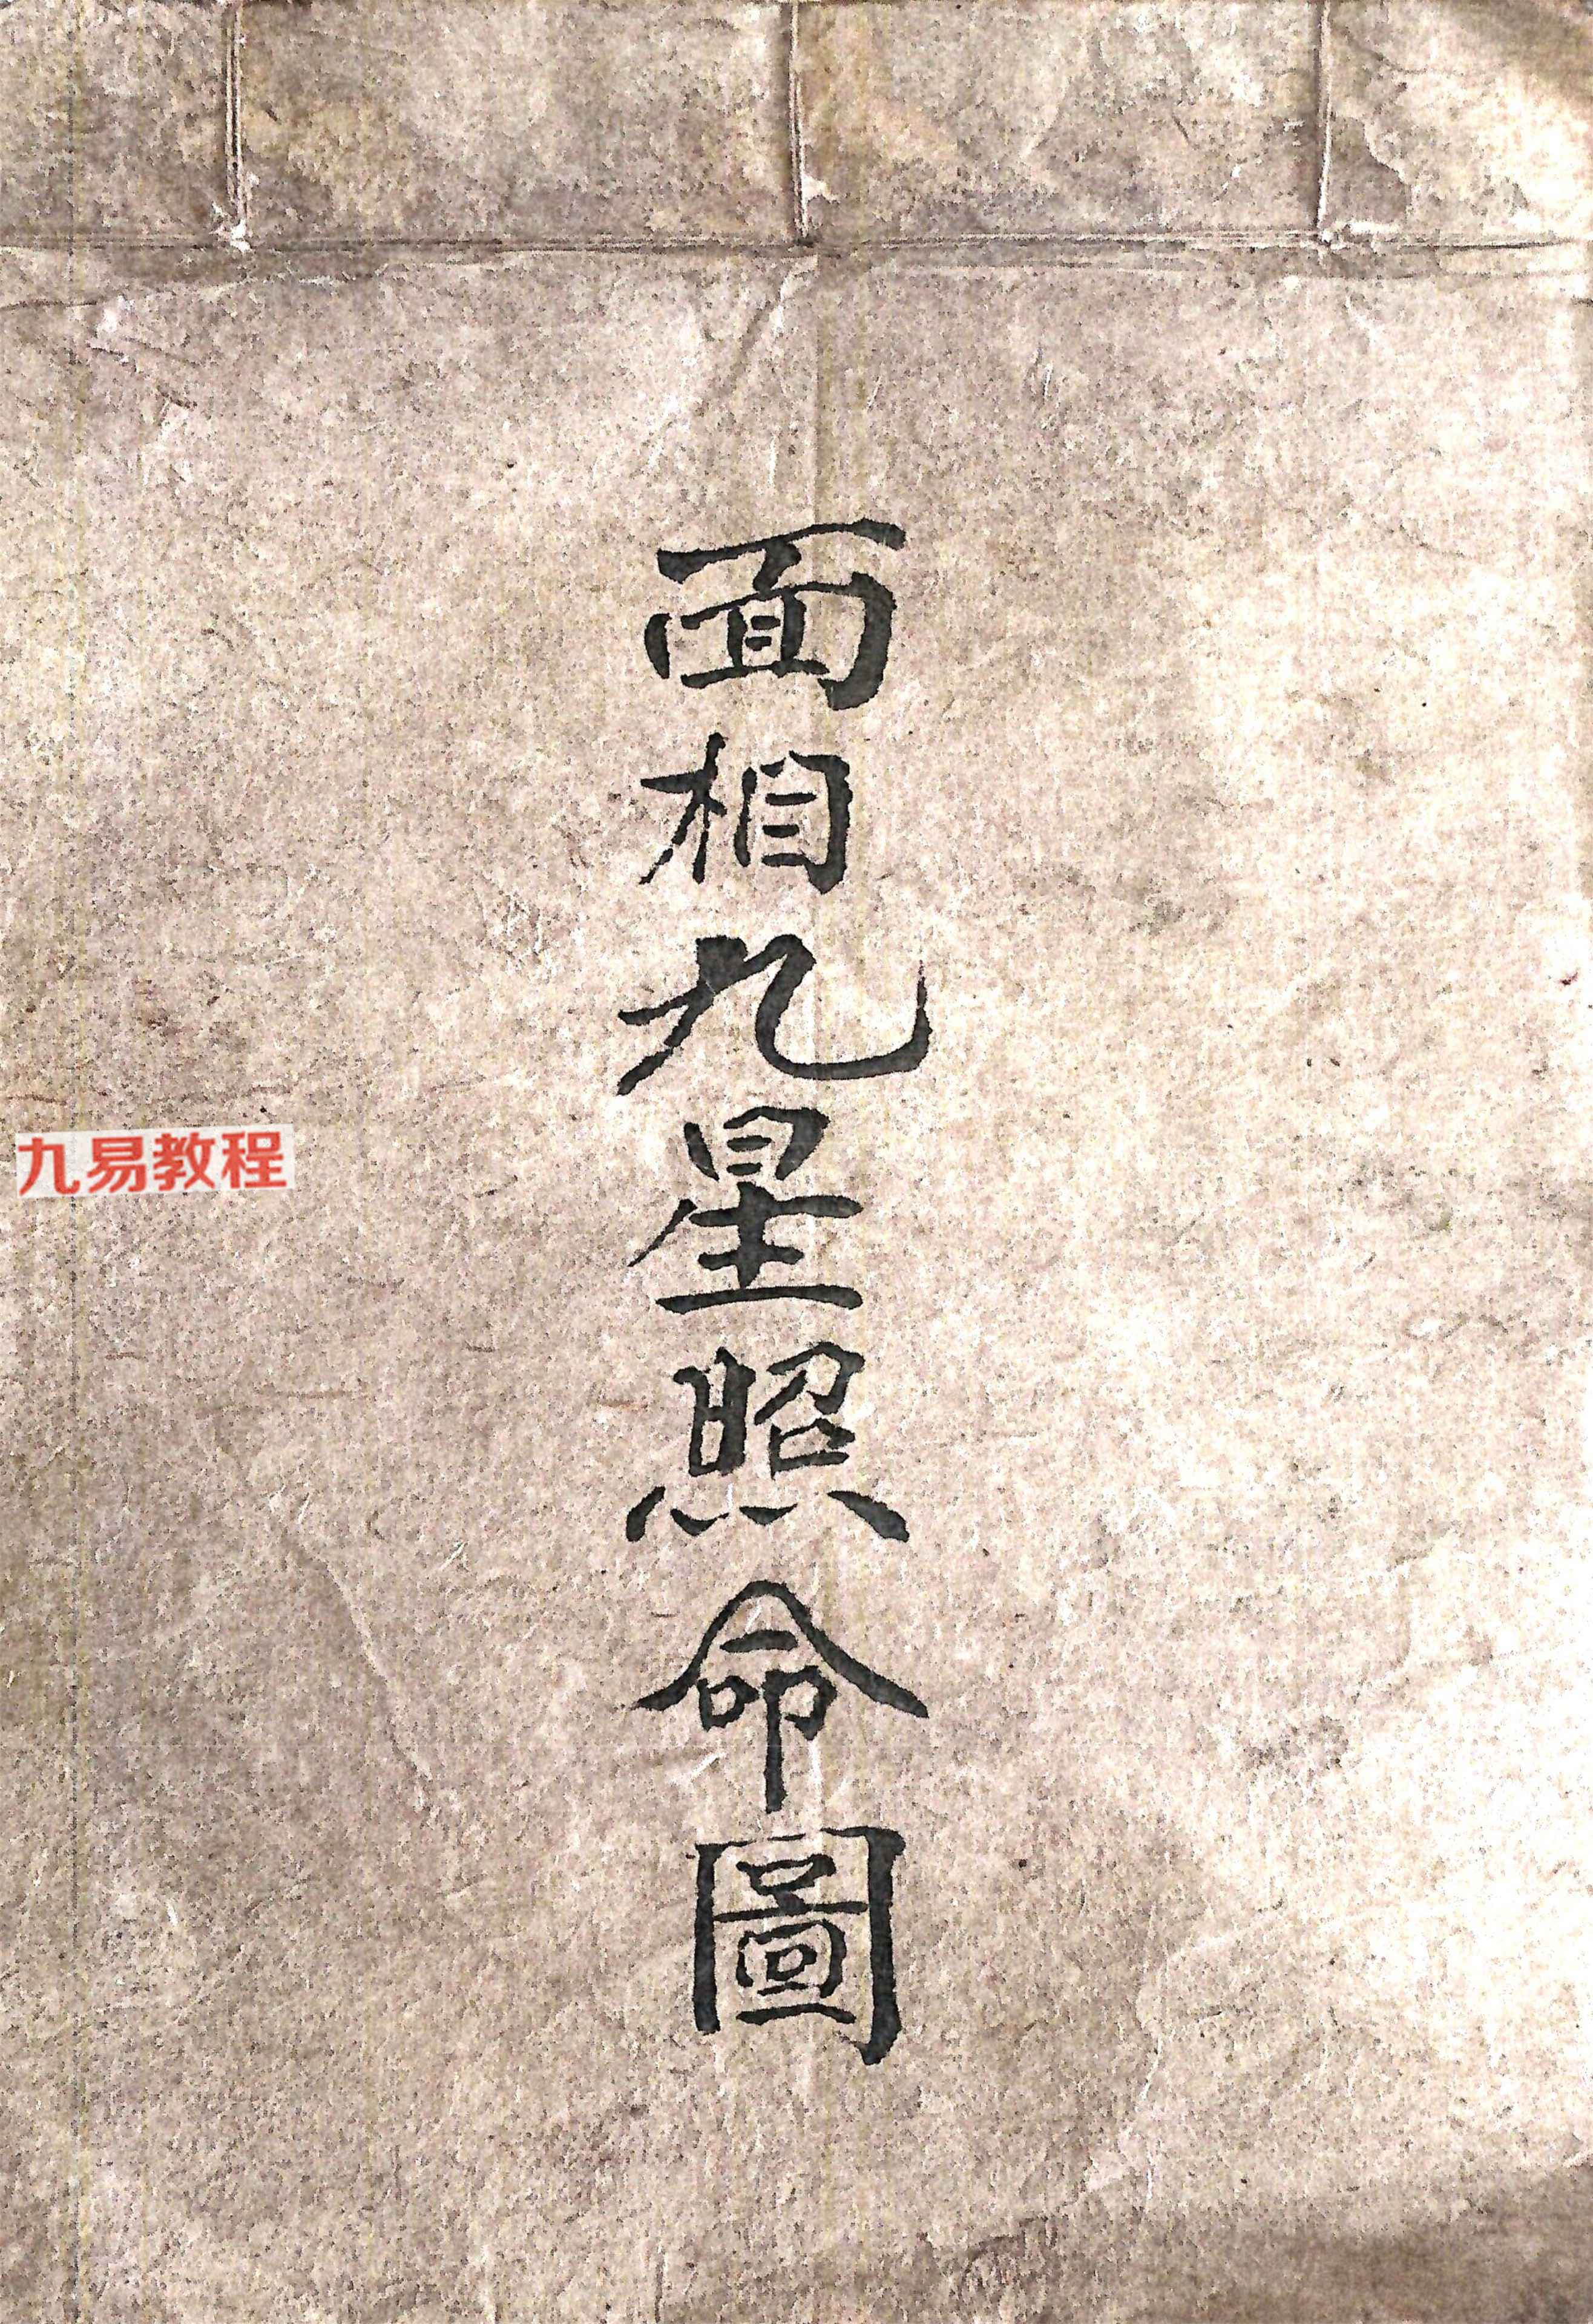 面相九星照命圖
九易教程